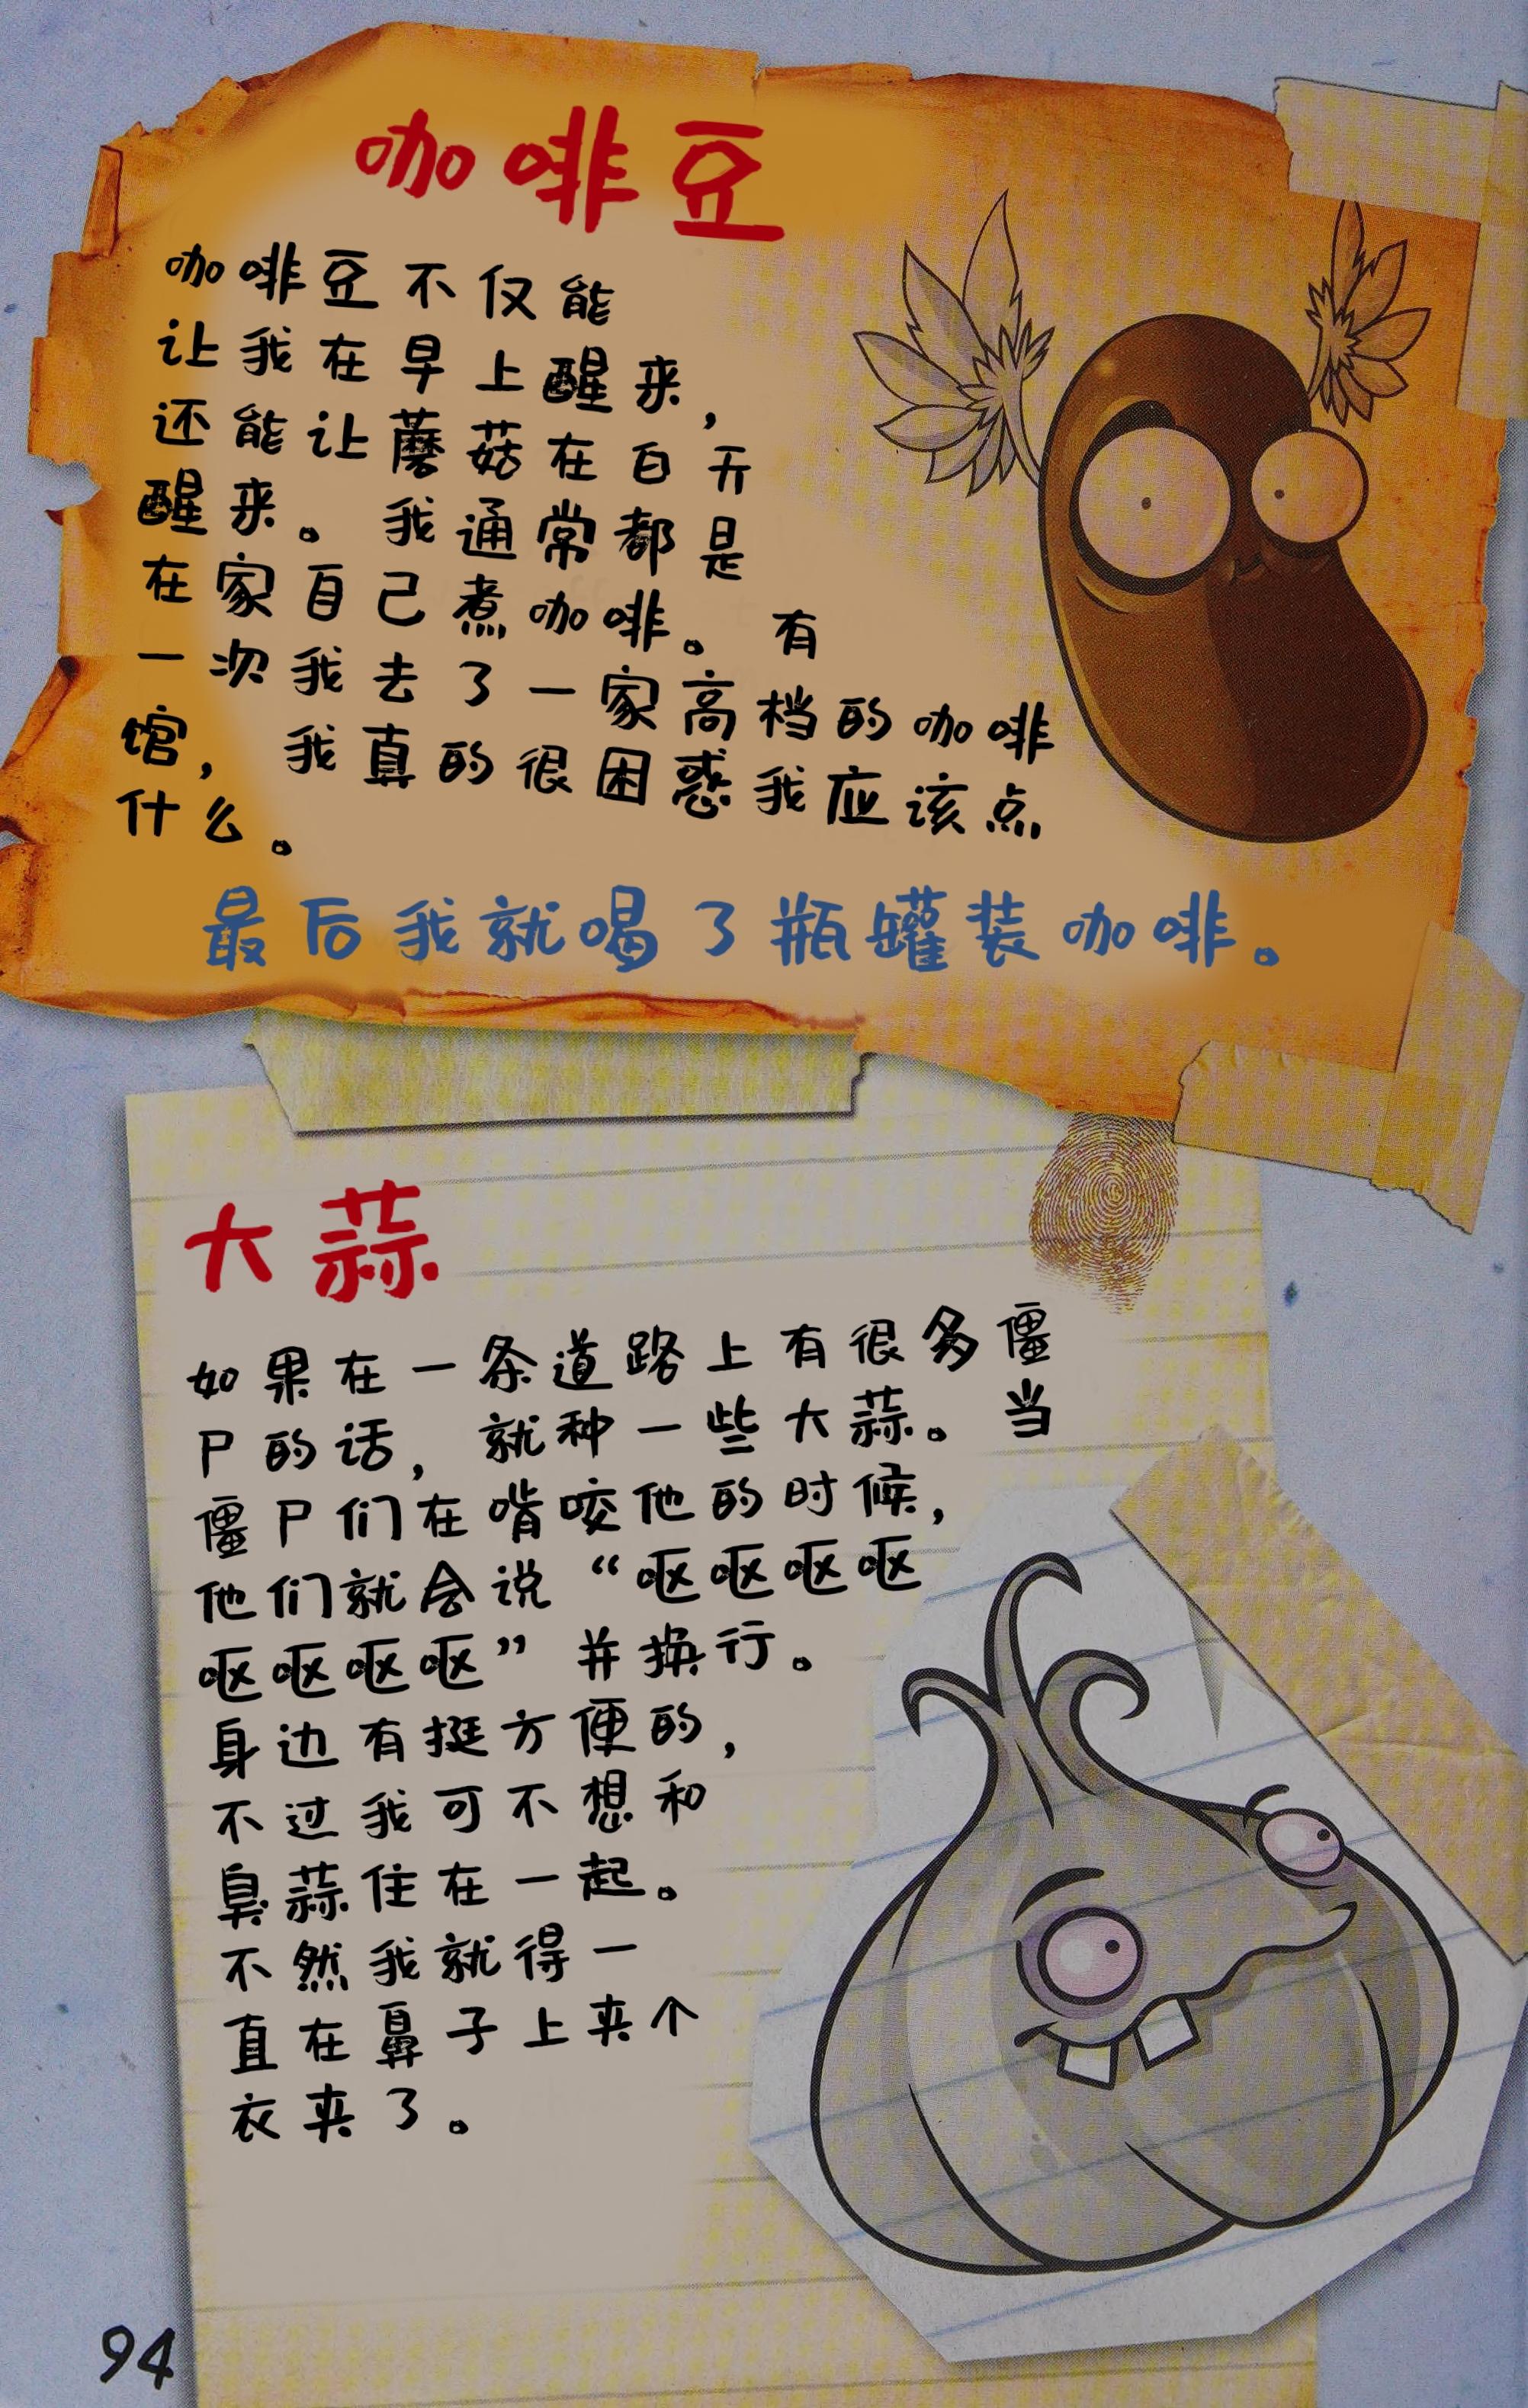 咖啡豆
咖啡豆不仅能
让我在早上醒来，
还能让蘑菇在白天
醒来。我通常都是
在家自己煮咖啡。有
一次我去了一家高档的咖啡
馆，我真的很困惑我应该点
什么。
最后我就喝了瓶罐装咖啡。
大蒜
如果在一条道路上有很多僵
尸的话，就种一些大蒜。当
僵尸们在啃咬他的时候，
他们就会说“呕呕呕呕
呕呕呕呕”并换行。
身边有挺方便的，
不过我可不想和
臭蒜住在一起。
不然我就得一
直在鼻子上夹个
衣夹了。
94